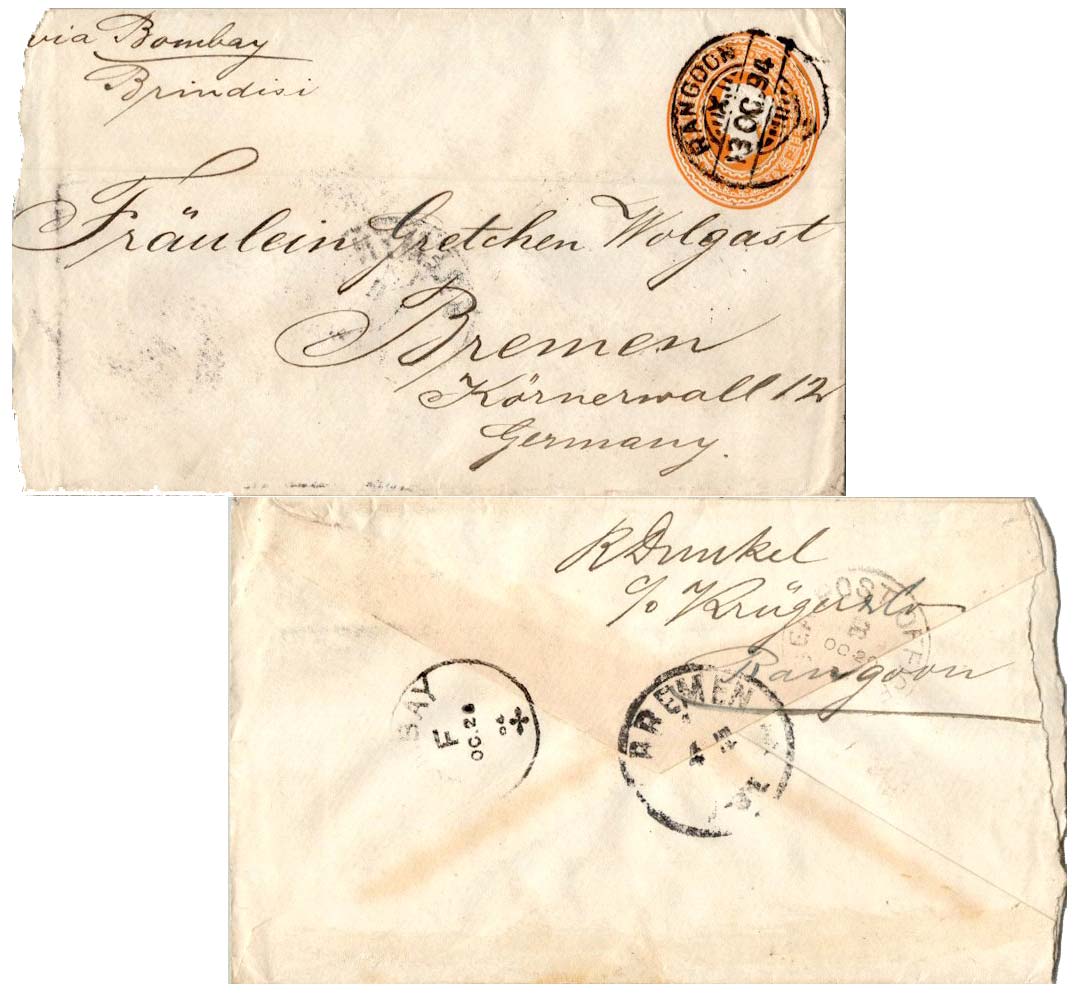 via Bombay
Brindisi
RANGOON
OC 94
Fräulein Gretchen Wolgast
Bremen
Körnerwall 12
Germany.
R Dunkel
c/o Krüger & Co
Rangoon
POST OFFICE
OC.2
BAY
F
OC.28
BREMEN
4